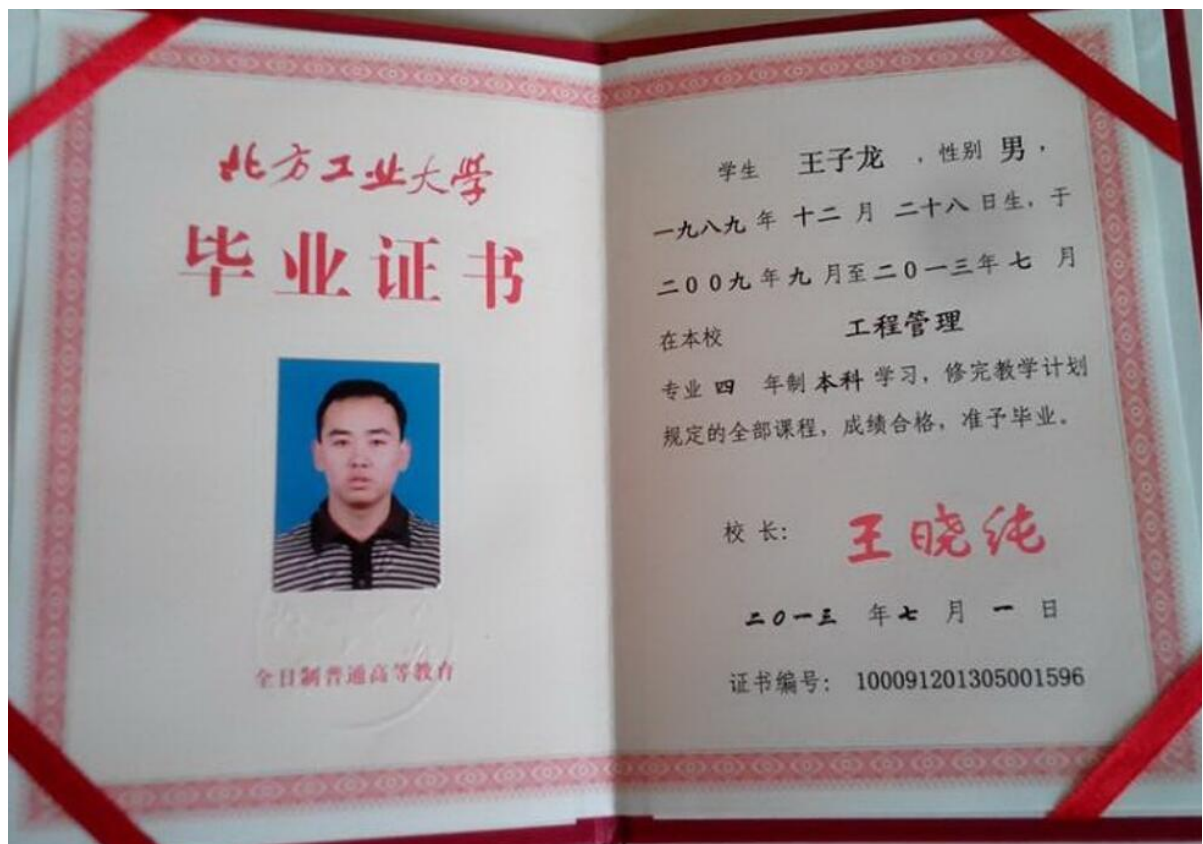 北方工业大学
毕业证书
全日制普通高等教育
学生 王子龙 ，性别 男，
一九八九 年 十二 月 二十八 日生，于
二00九 年 九 月至 二0一三 年 七 月
在本校 工程管理
专业 四 年制 本科 学习，修完教学计划
规定的全部课程，成绩合格，准予毕业。
校 长： 王晓纯
二0一三 年 七 月 一 日
证书编号： 100091201305001596